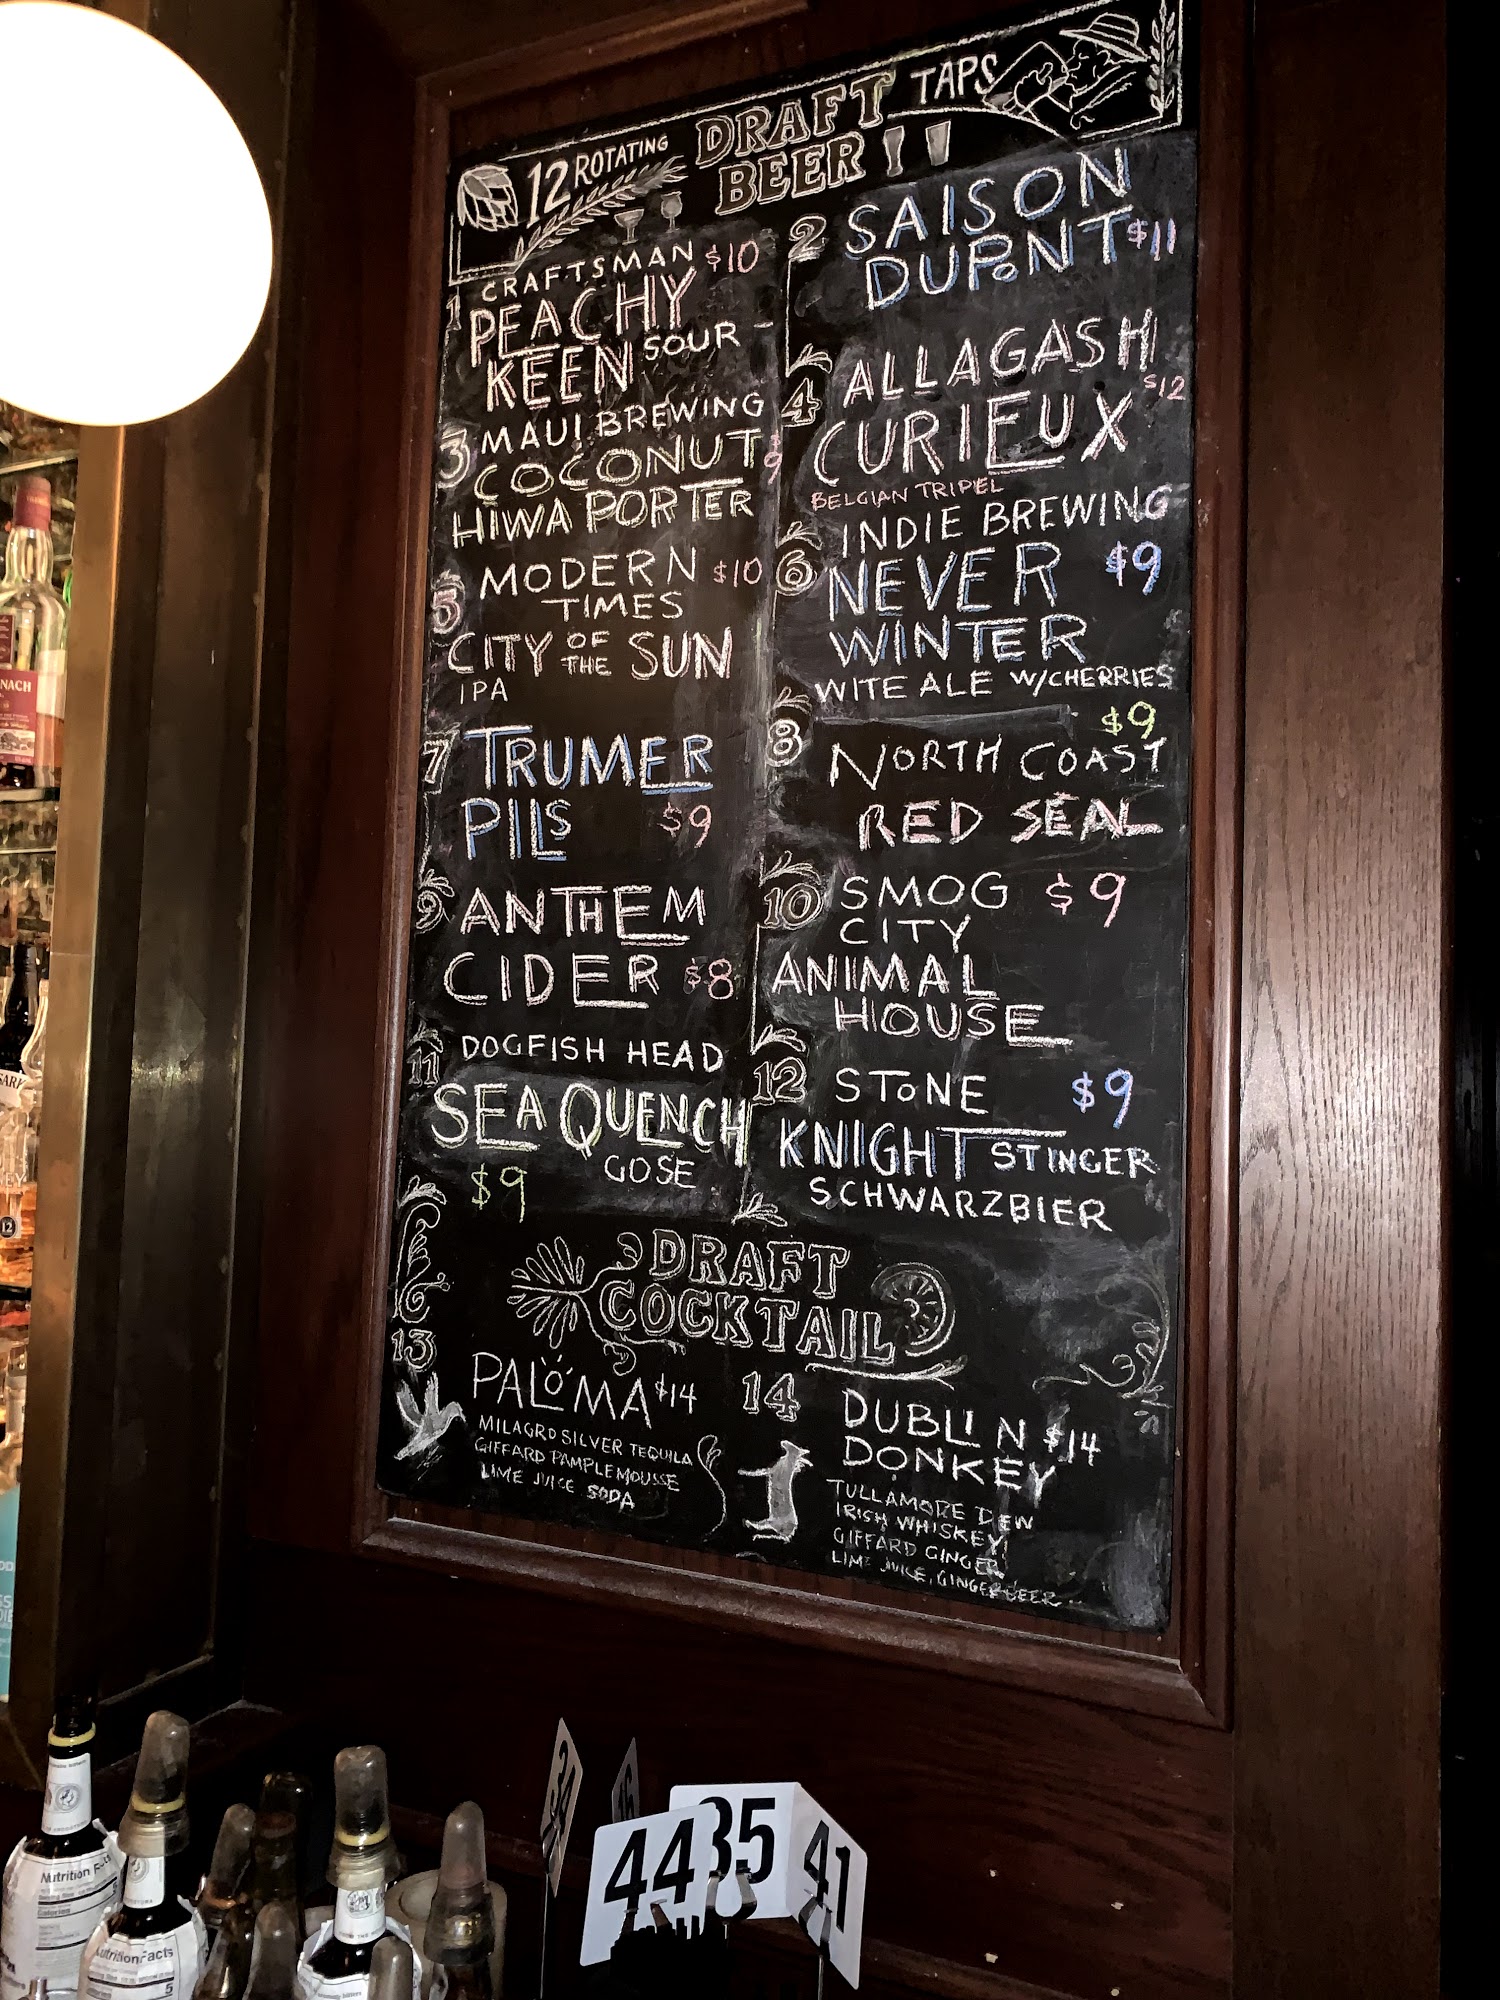 12 ROTATING DRAFT BEER TAPS
1
CRAFTSMAN $10
PEACHY
KEEN SOUR
2
SAISON
DUPONT $11
3
MAUI BREWING
COCONUT $9
HIWA PORTER
4
ALLAGASH
CURIEUX $12
BELGIAN TRIPEL
5
MODERN $10
TIMES
CITY OF THE SUN
IPA
6
INDIE BREWING
NEVER $9
WINTER
WITE ALE W/CHERRIES
7
TRUMER
PILS $9
8
$9
NORTH COAST
RED SEAL
9
ANTHEM
CIDER $8
10
SMOG $9
CITY
ANIMAL
HOUSE
11
DOGFISH HEAD
SEA QUENCH
GOSE
$9
12
STONE $9
KNIGHT STINGER
SCHWARZBIER
DRAFT
COCKTAIL
13
PALOMA $14
MILAGRO SILVER TEQUILA
GIFFARD PAMPLEMOUSSE
LIME JUICE SODA
14
DUBLIN $14
DONKEY
TULLAMORE DEW
IRISH WHISKEY
GIFFARD GINGER
LIME JUICE, GINGER BEER
NACH
12
34
16
44
35
41
Nutrition Facts
Calories
Nutrition Facts
5